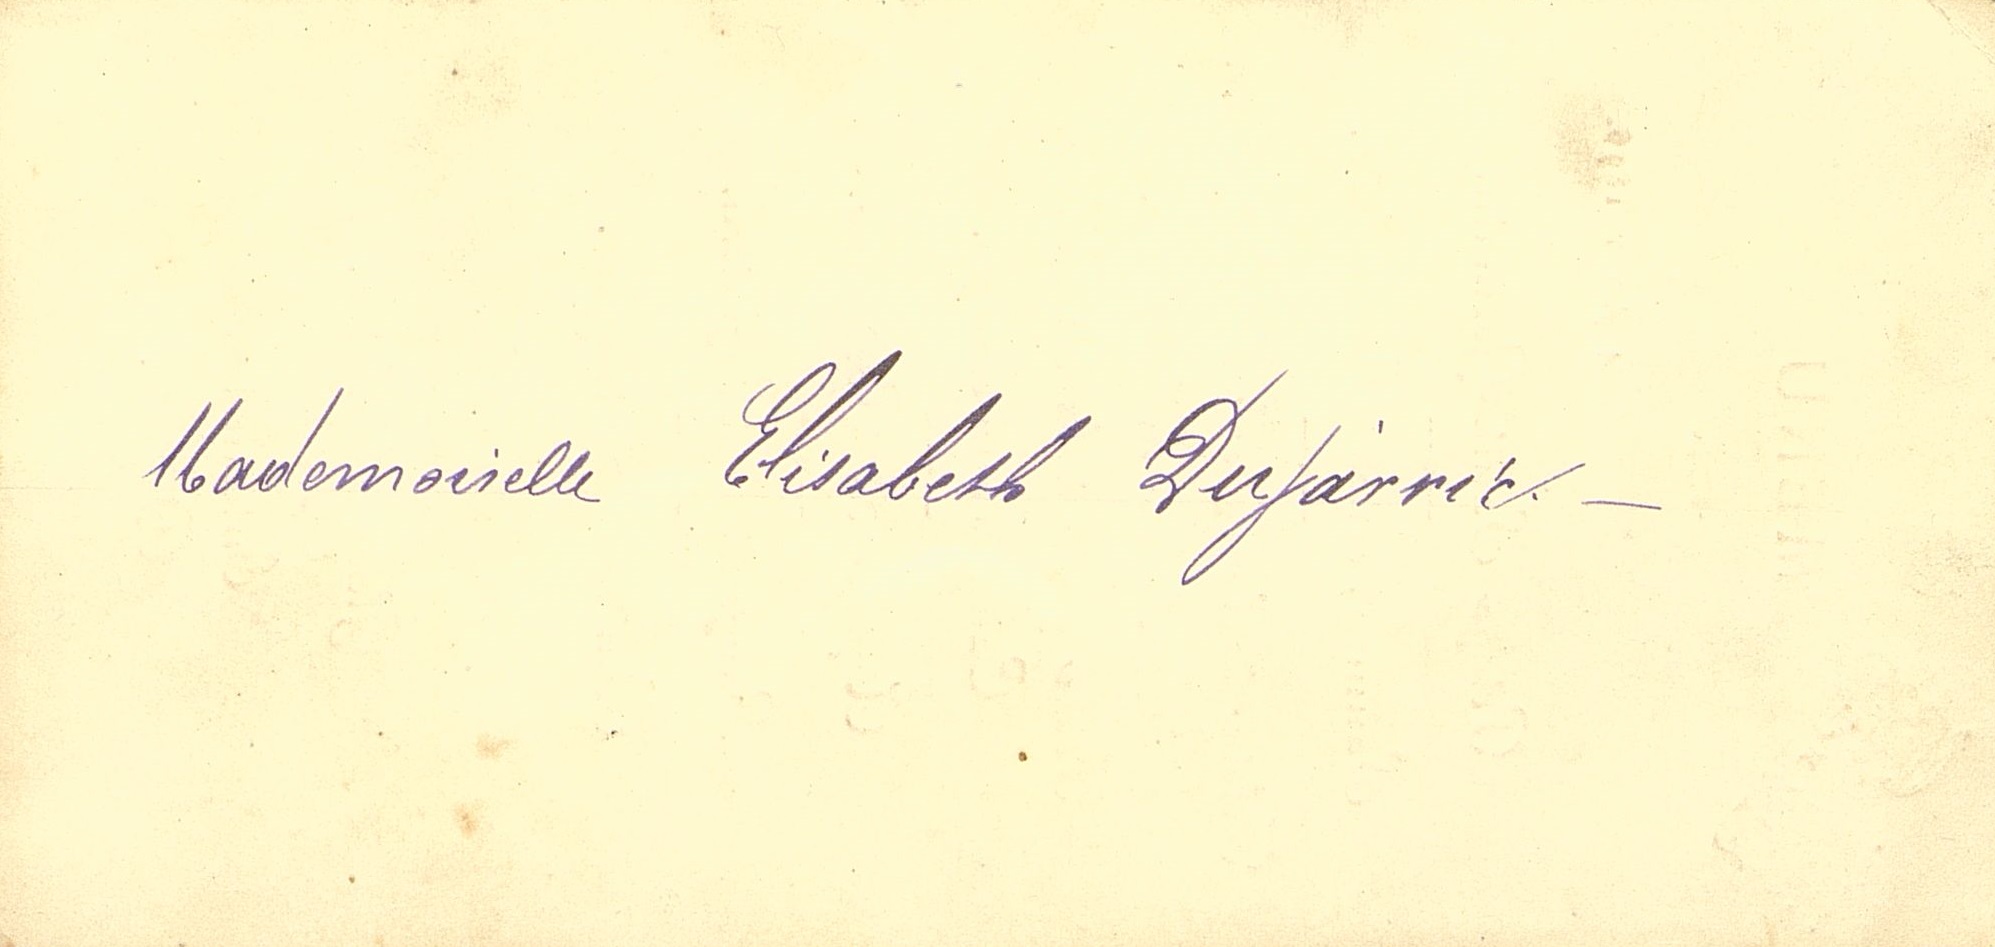 Mademoiselle Elisabeth Dujarric. —